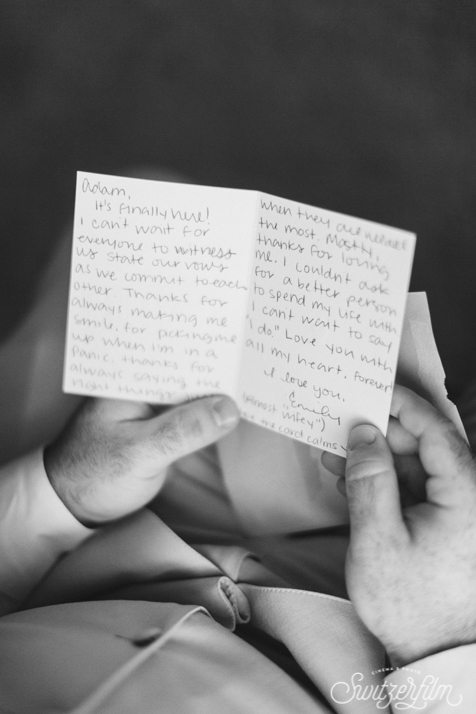 Adam,
It's finally here!
I can't wait for
everyone to witness
us state our vows
as we commit to each
other. Thanks for
always making me
smile, for picking me
up when I'm in a
panic, thanks for
always saying the
right things
when they are needed
the most. Mostly,
thanks for loving
me. I couldn't ask
for a better person
to spend my life with
I can't wait to say
"I do." Love you with
all my heart, forever
I love you,
Emily
(almost "wifey")
the card calms
CINEMA & PHOTO
Switzerfilm